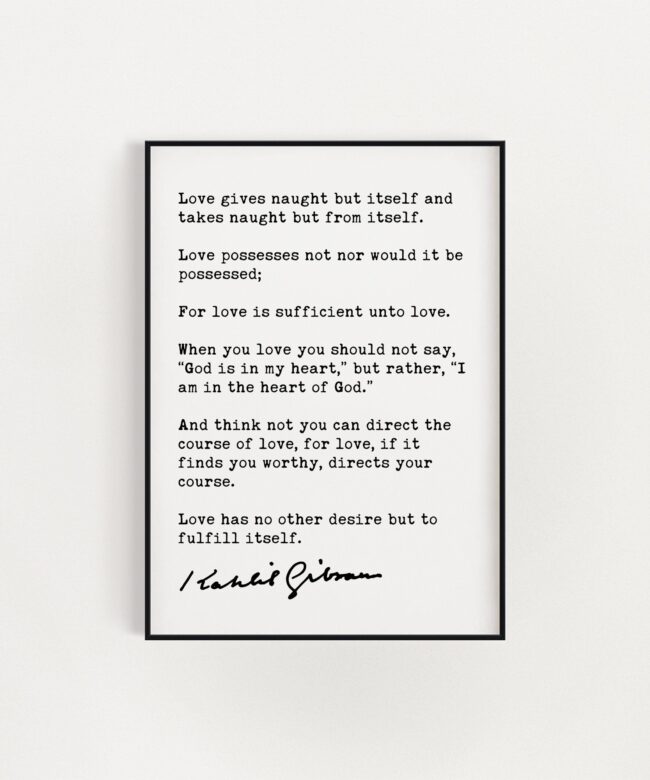 Love gives naught but itself and
takes naught but from itself.
Love possesses not nor would it be
possessed;
For love is sufficient unto love.
When you love you should not say,
“God is in my heart,” but rather, “I
am in the heart of God.”
And think not you can direct the
course of love, for love, if it
finds you worthy, directs your
course.
Love has no other desire but to
fulfill itself.
Kahlil Gibran